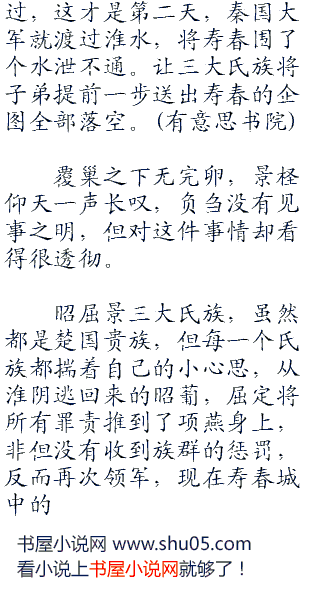 过，这才是第二天，秦国大
军就渡过淮水，将寿春围了
个水泄不通。让三大氏族将
子弟提前一步送出寿春的企
图全部落空。(有意思书院)
覆巢之下无完卵，景柽
仰天一声长叹，负刍没有见
事之明，但对这件事情却看
得很透彻。
昭屈景三大氏族，虽然
都是楚国贵族，但每一个氏
族都揣着自己的小心思，从
淮阴逃回来的昭蔔，屈定将
所有罪责推到了项燕身上，
非但没有收到族群的惩罚，
反而再次领军，现在寿春城
中的
书屋小说网 www.shu05.com
看小说上书屋小说网就够了！